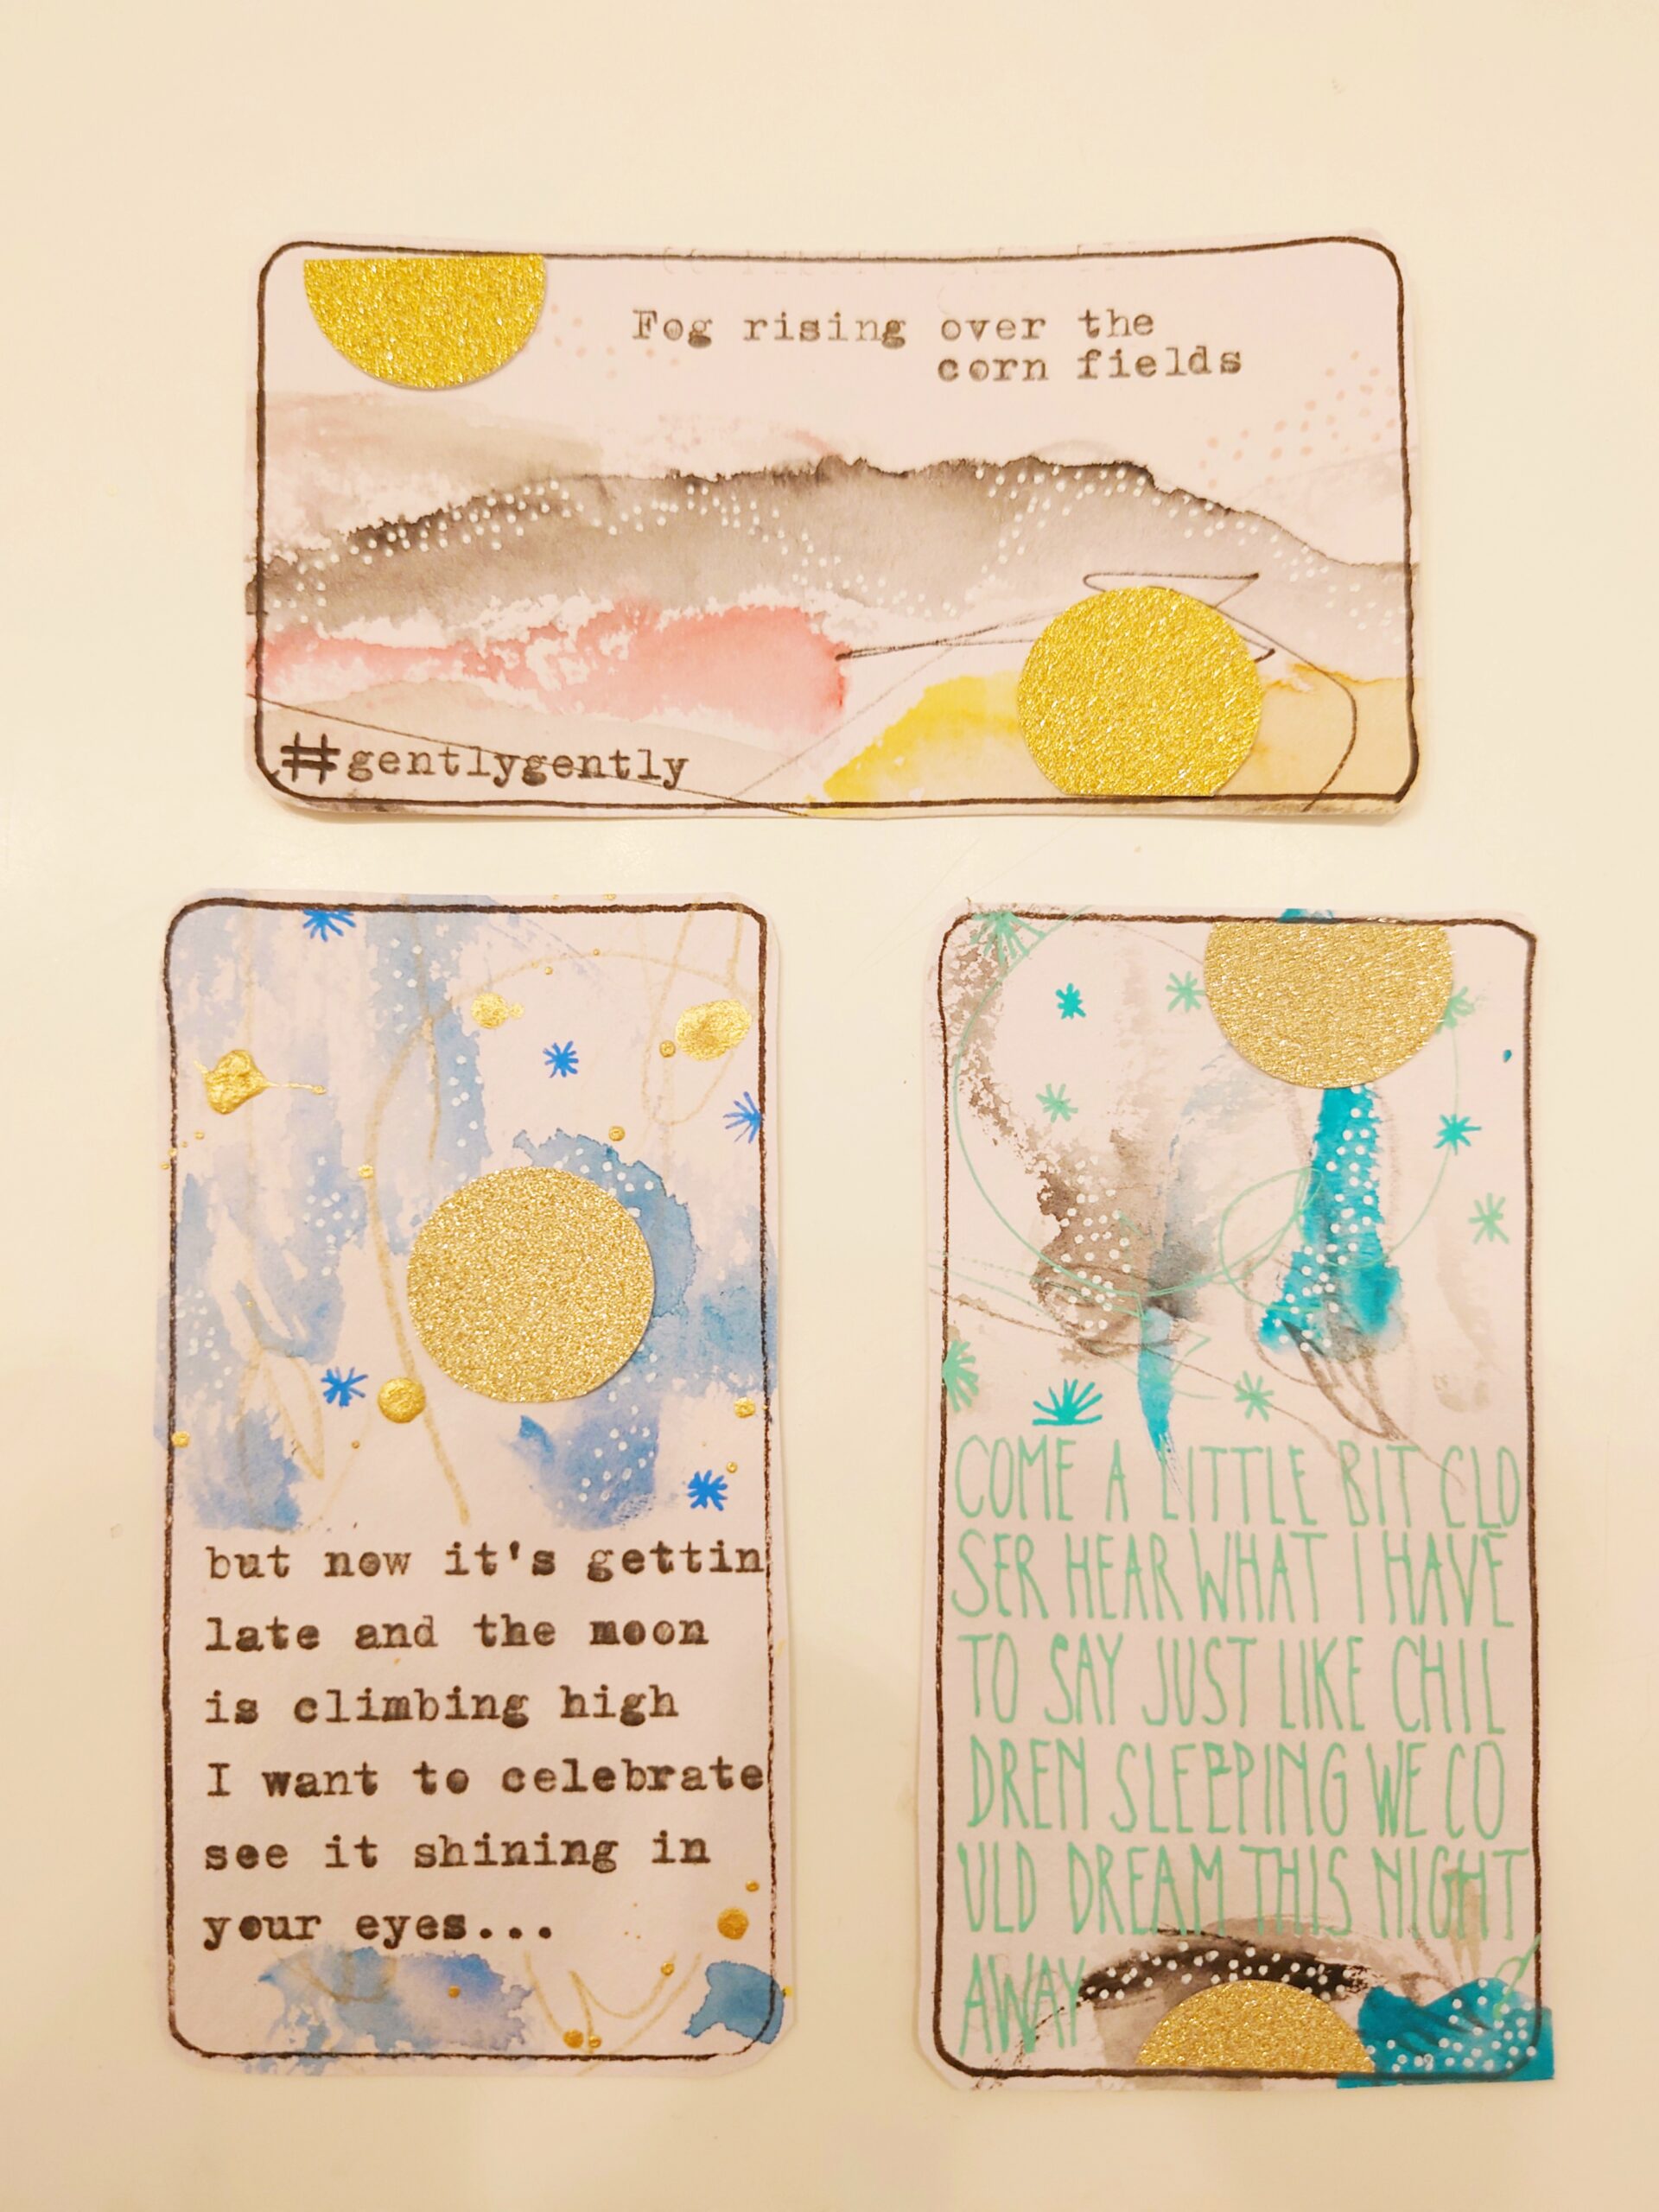 Fog rising over the
corn fields
#gentlygently
but now it's gettin
late and the moon
is climbing high
I want to celebrate
see it shining in
your eyes...
COME A LITTLE BIT CLO
SER HEAR WHAT I HAVE
TO SAY JUST LIKE CHIL
DREN SLEEPING WE CO
ULD DREAM THIS NIGHT
AWAY